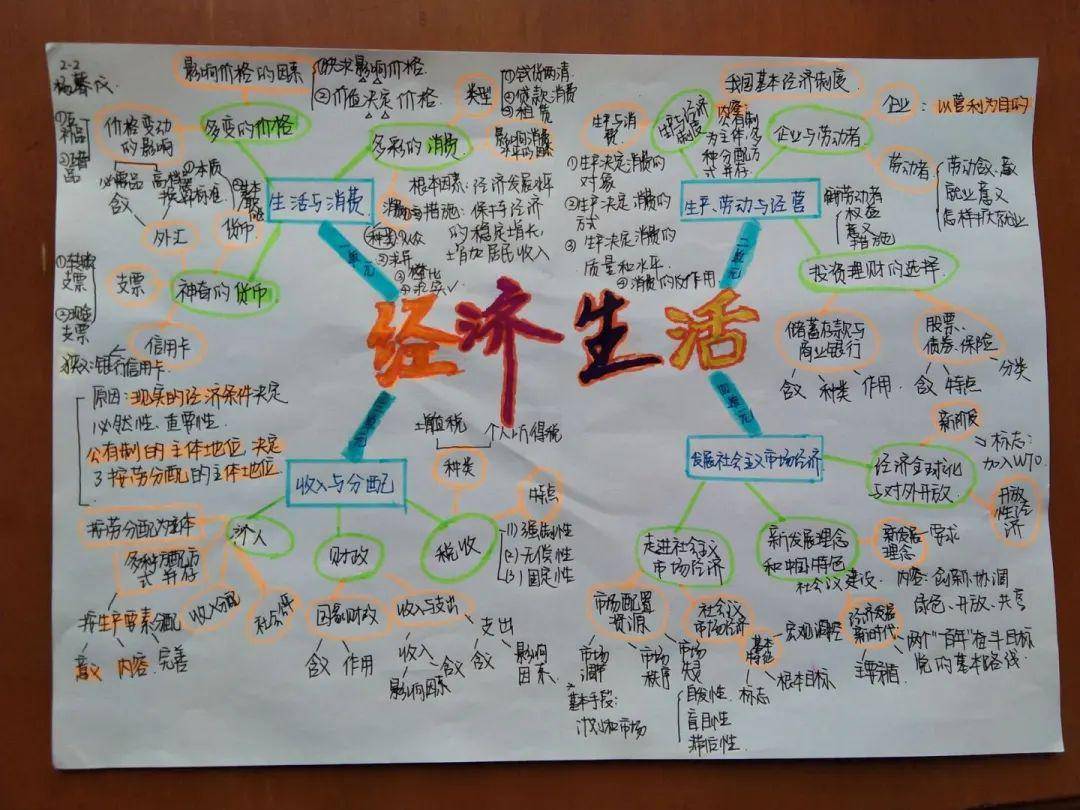 2-2
影响价格的因素
①供求影响价格.
②价值决定价格.
多变的价格
价格变动
的影响
必需品
高档
含义
外汇
①本质
货币
②基本
支票
神奇的货币
信用卡
支票
支票
狭义:银行信用卡.
生活与消费
一单元
多彩的消费
类型
①钱货两清
②贷款消费
③租赁
影响消费
根本因素:经济发展水平
措施:保持经济
的稳定增长,
增加居民收入
种类
从众
③攀比
④求实✓
经济生活
生产与消
费
①生产决定消费的
对象
②生产决定消费的
方式
③ 生产决定消费的
质量和水平.
④消费的反作用
生产与经济
制度
我国基本经济制度
内容:
公有制
为主体,多
种分配方
式并存.
生产、劳动与经营
二单元
企业与劳动者
企业:
以营利为目的
劳动者
劳动含、意
就业意义
怎样扩大就业
新劳动者
权益
意义
措施
投资理财的选择
储蓄存款与
商业银行
含义
种类
作用
股票、
债券、保险
含义
特点
分类
原因:现实的经济条件决定
必然性、重要性.
公有制的主体地位决定
了按劳分配的主体地位.
收入与分配
三单元
按劳分配为主体
多种分配方
式并存
按生产要素分配
意义
内容
完善
收入分配
社会公平
财政
国家财政
含义
作用
收入与支出
收入
影响因素
含义
支出
含义
影响
因素.
税收
种类
增值税
个人所得税
特点
(1)强制性
(2)无偿性
(3)固定性
发展社会主义市场经济
四单元
走进社会主义
市场经济
市场配置
资源
市场
调节
市场
秩序
市场
失灵
基本手段:
计划和市场
自发性.
盲目性
滞后性.
社会主义
市场经济
基本
特征
标志
根本目标
宏观调控
新发展理念
和中国特色
社会主义建设.
新发展
理念
要求
内容:创新、协调
绿色、开放、共享
经济发展
新时代
主要矛盾
两个"一百年"奋斗目标
党的基本路线.
经济全球化
与对外开放.
新阶段
标志:
加入WTO
开放
性经
济